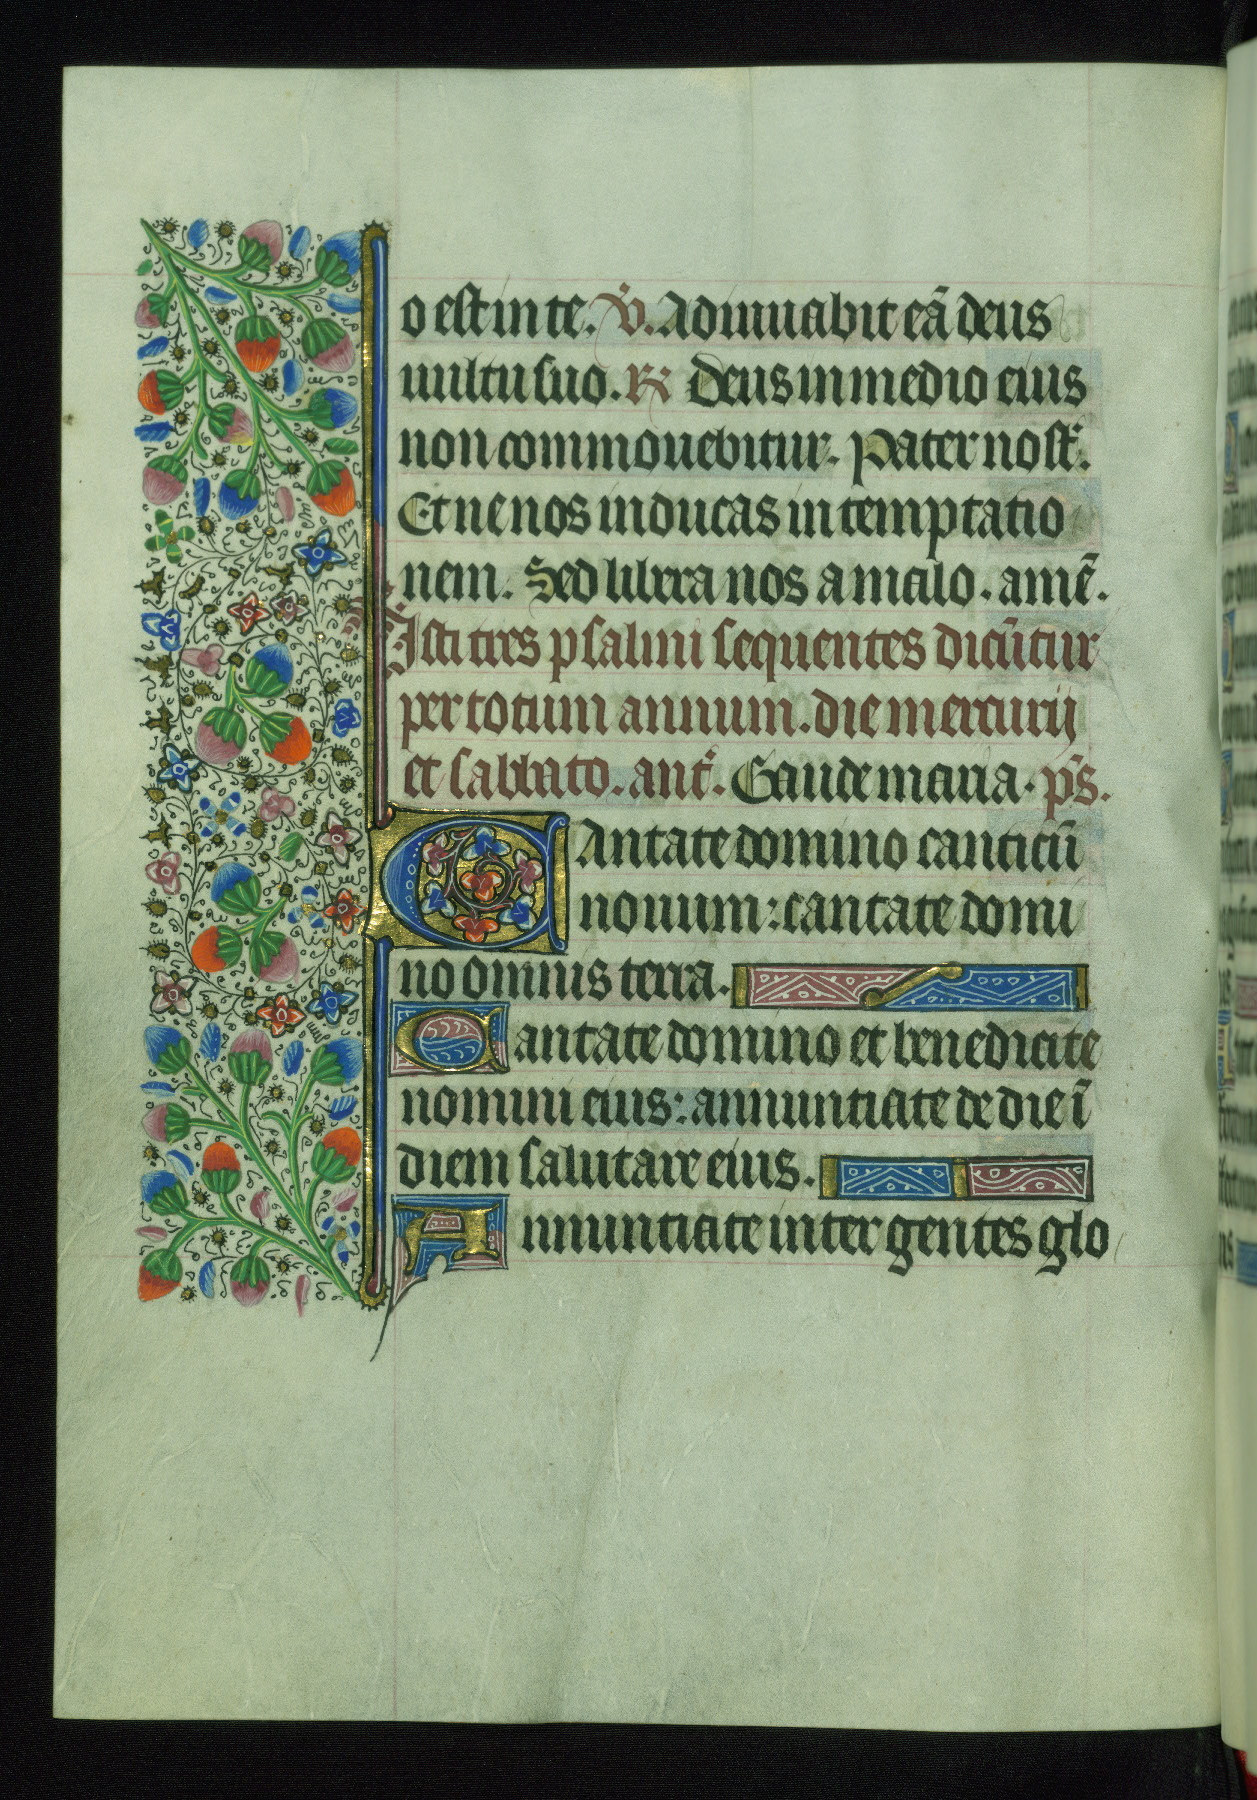 o est in te. V̄. Adiuuabit eā deus
uultu suo. R̄ Deus in medio eius
non commouebitur. Pater nost̄.
Et ne nos inducas in temptatio
nem. Sed libera nos a malo. amē.
Isti tres psalmi sequentes dicūtur
per totum annum. die mercurij
et sabbato. ant̄. Gaude maria. p̄s.
CAntate domino canticū
nouum: cantate domi
no omnis terra.
Cantate domino et benedicite
nomini eius: annuntiate de die ī
diem salutare eius.
Annuntiate inter gentes glo